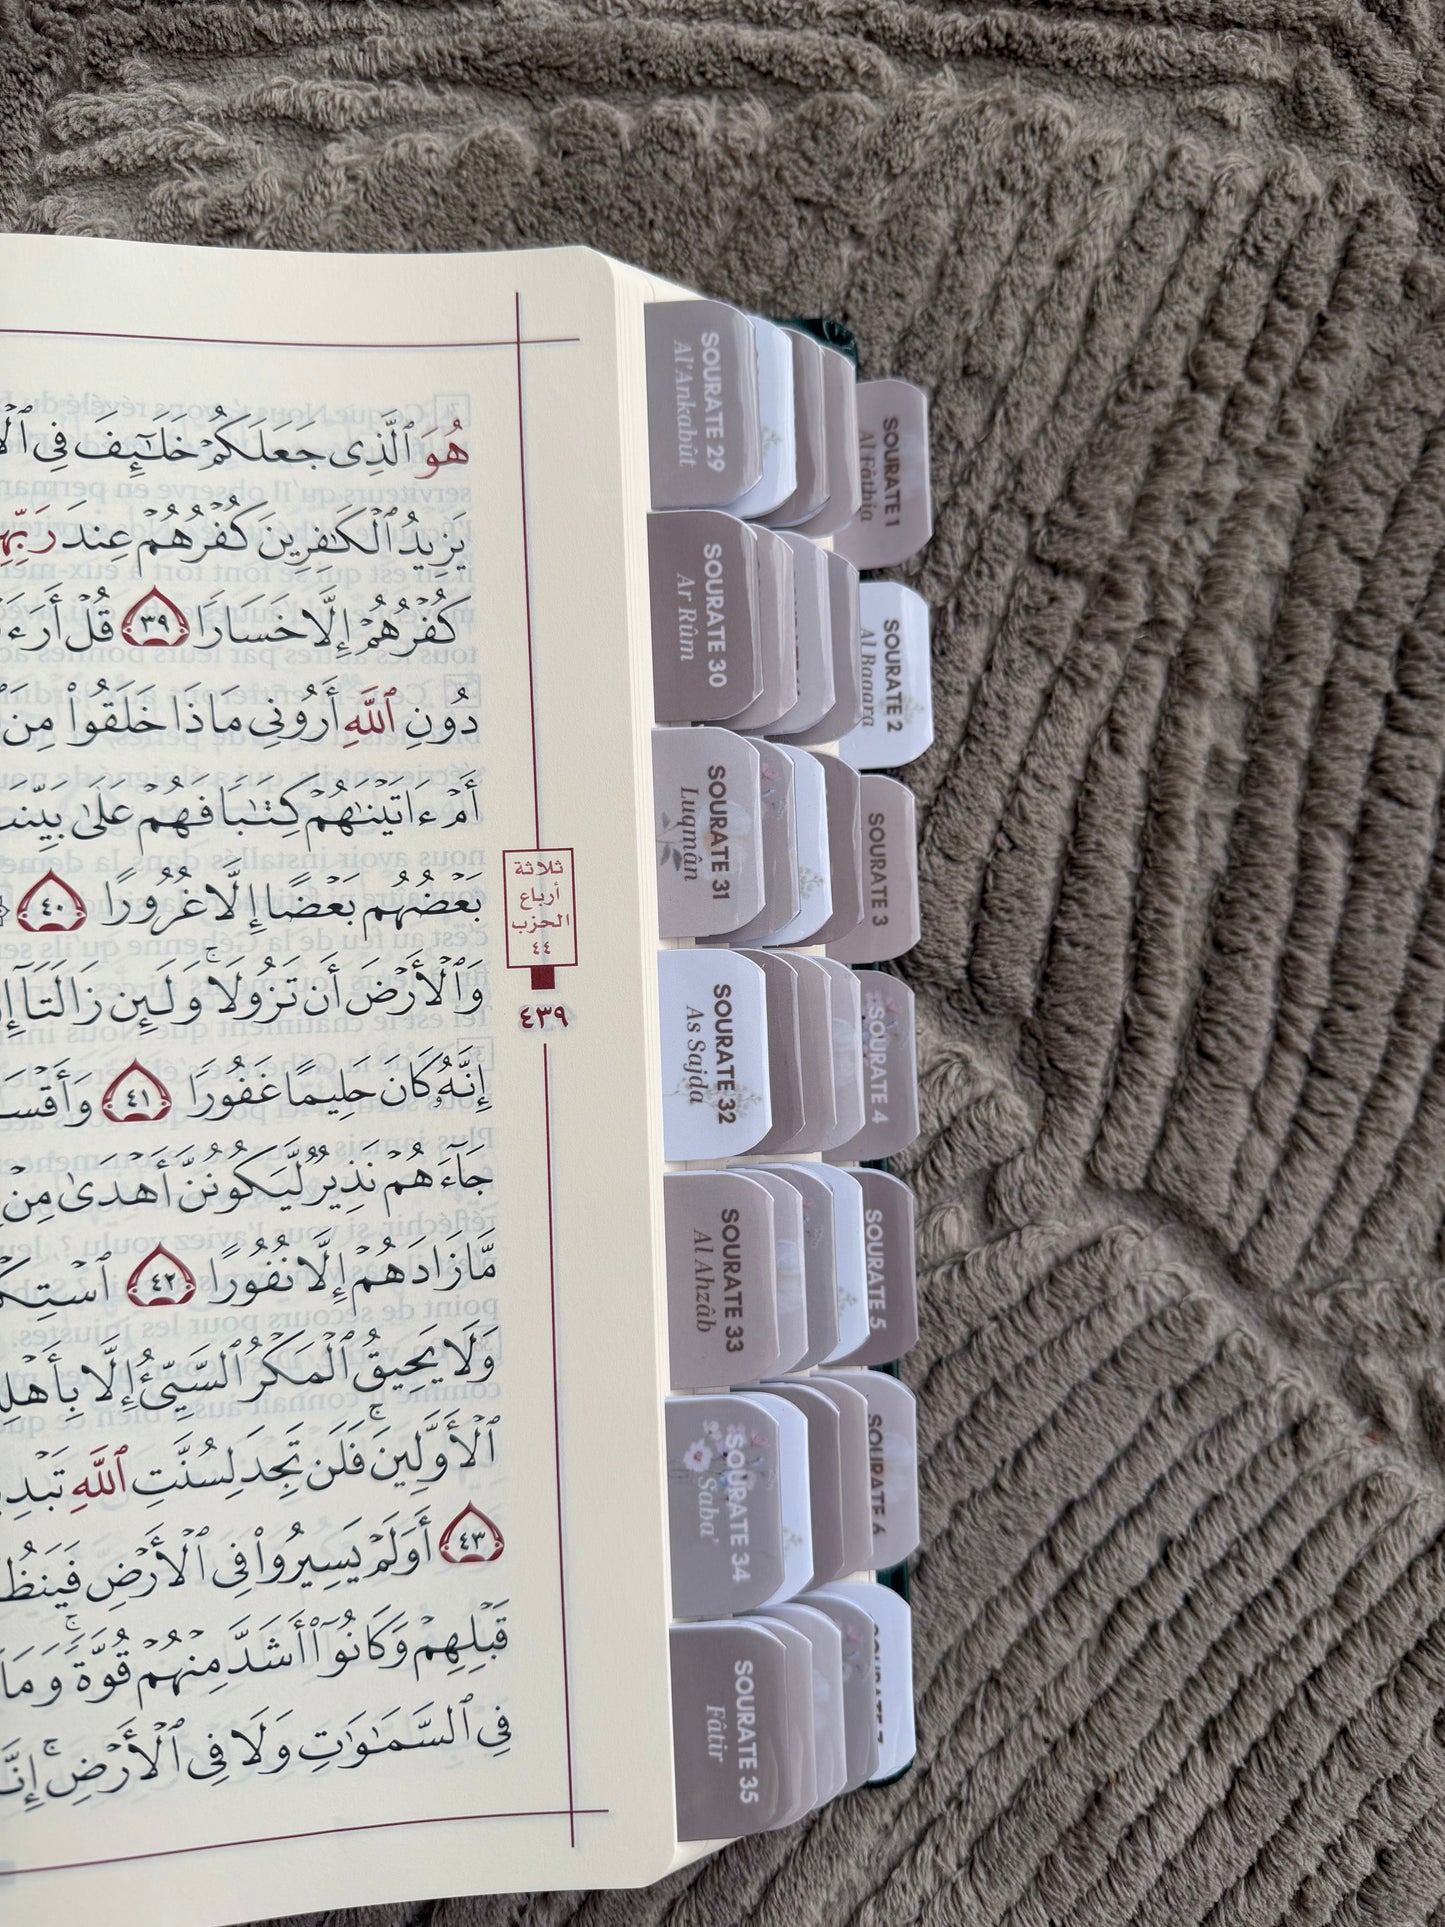 هُوَ ٱلَّذِى جَعَلَكُمْ خَلَـٰٓئِفَ فِى
يَزِيدُ ٱلْكَـٰفِرِينَ كُفْرُهُمْ عِندَ رَبِّهِ
كُفْرُهُمْ إِلَّا خَسَارًا ٣٩ قُلْ
دُونِ ٱللَّهِ أَرُونِى مَاذَا خَلَقُوا۟ مِنَ
أَمْ ءَاتَيْنَـٰهُمْ كِتَـٰبًا فَهُمْ عَلَىٰ
بَعْضُهُم بَعْضًا إِلَّا غُرُورًا ٤٠
وَٱلْأَرْضَ أَن تَزُولَا ۚ وَلَئِن زَالَتَآ
إِنَّهُۥ كَانَ حَلِيمًا غَفُورًا ٤١
جَآءَهُمْ نَذِيرٌ لَّيَكُونُنَّ أَهْدَىٰ مِنْ
مَّا زَادَهُمْ إِلَّا نُفُورًا ٤٢
وَلَا يَحِيقُ ٱلْمَكْرُ ٱلسَّيِّئُ إِلَّا
ٱلْأَوَّلِينَ ۚ فَلَن تَجِدَ لِسُنَّتِ ٱللَّهِ
٤٣ أَوَلَمْ يَسِيرُوا۟ فِى ٱلْأَرْضِ
قَبْلِهِمْ وَكَانُوٓا۟ أَشَدَّ مِنْهُمْ قُوَّةً ۚ وَمَا
فِى ٱلسَّمَـٰوَٰتِ وَلَا فِى ٱلْأَرْضِ ۚ
ثلاثة
أرباع
الحزب
٤٤
٤٣٩
SOURATE 29
Al'Ankabût
SOURATE 30
Ar Rûm
SOURATE 31
Luqmân
SOURATE 32
As Sajda
SOURATE 33
Al Ahzâb
SOURATE 34
Saba'
SOURATE 35
Fâtir
SOURATE 1
Al Fâtiha
SOURATE 2
Al Baqara
SOURATE 3
SOURATE 4
SOURATE 5
SOURATE 6
SOURATE 7